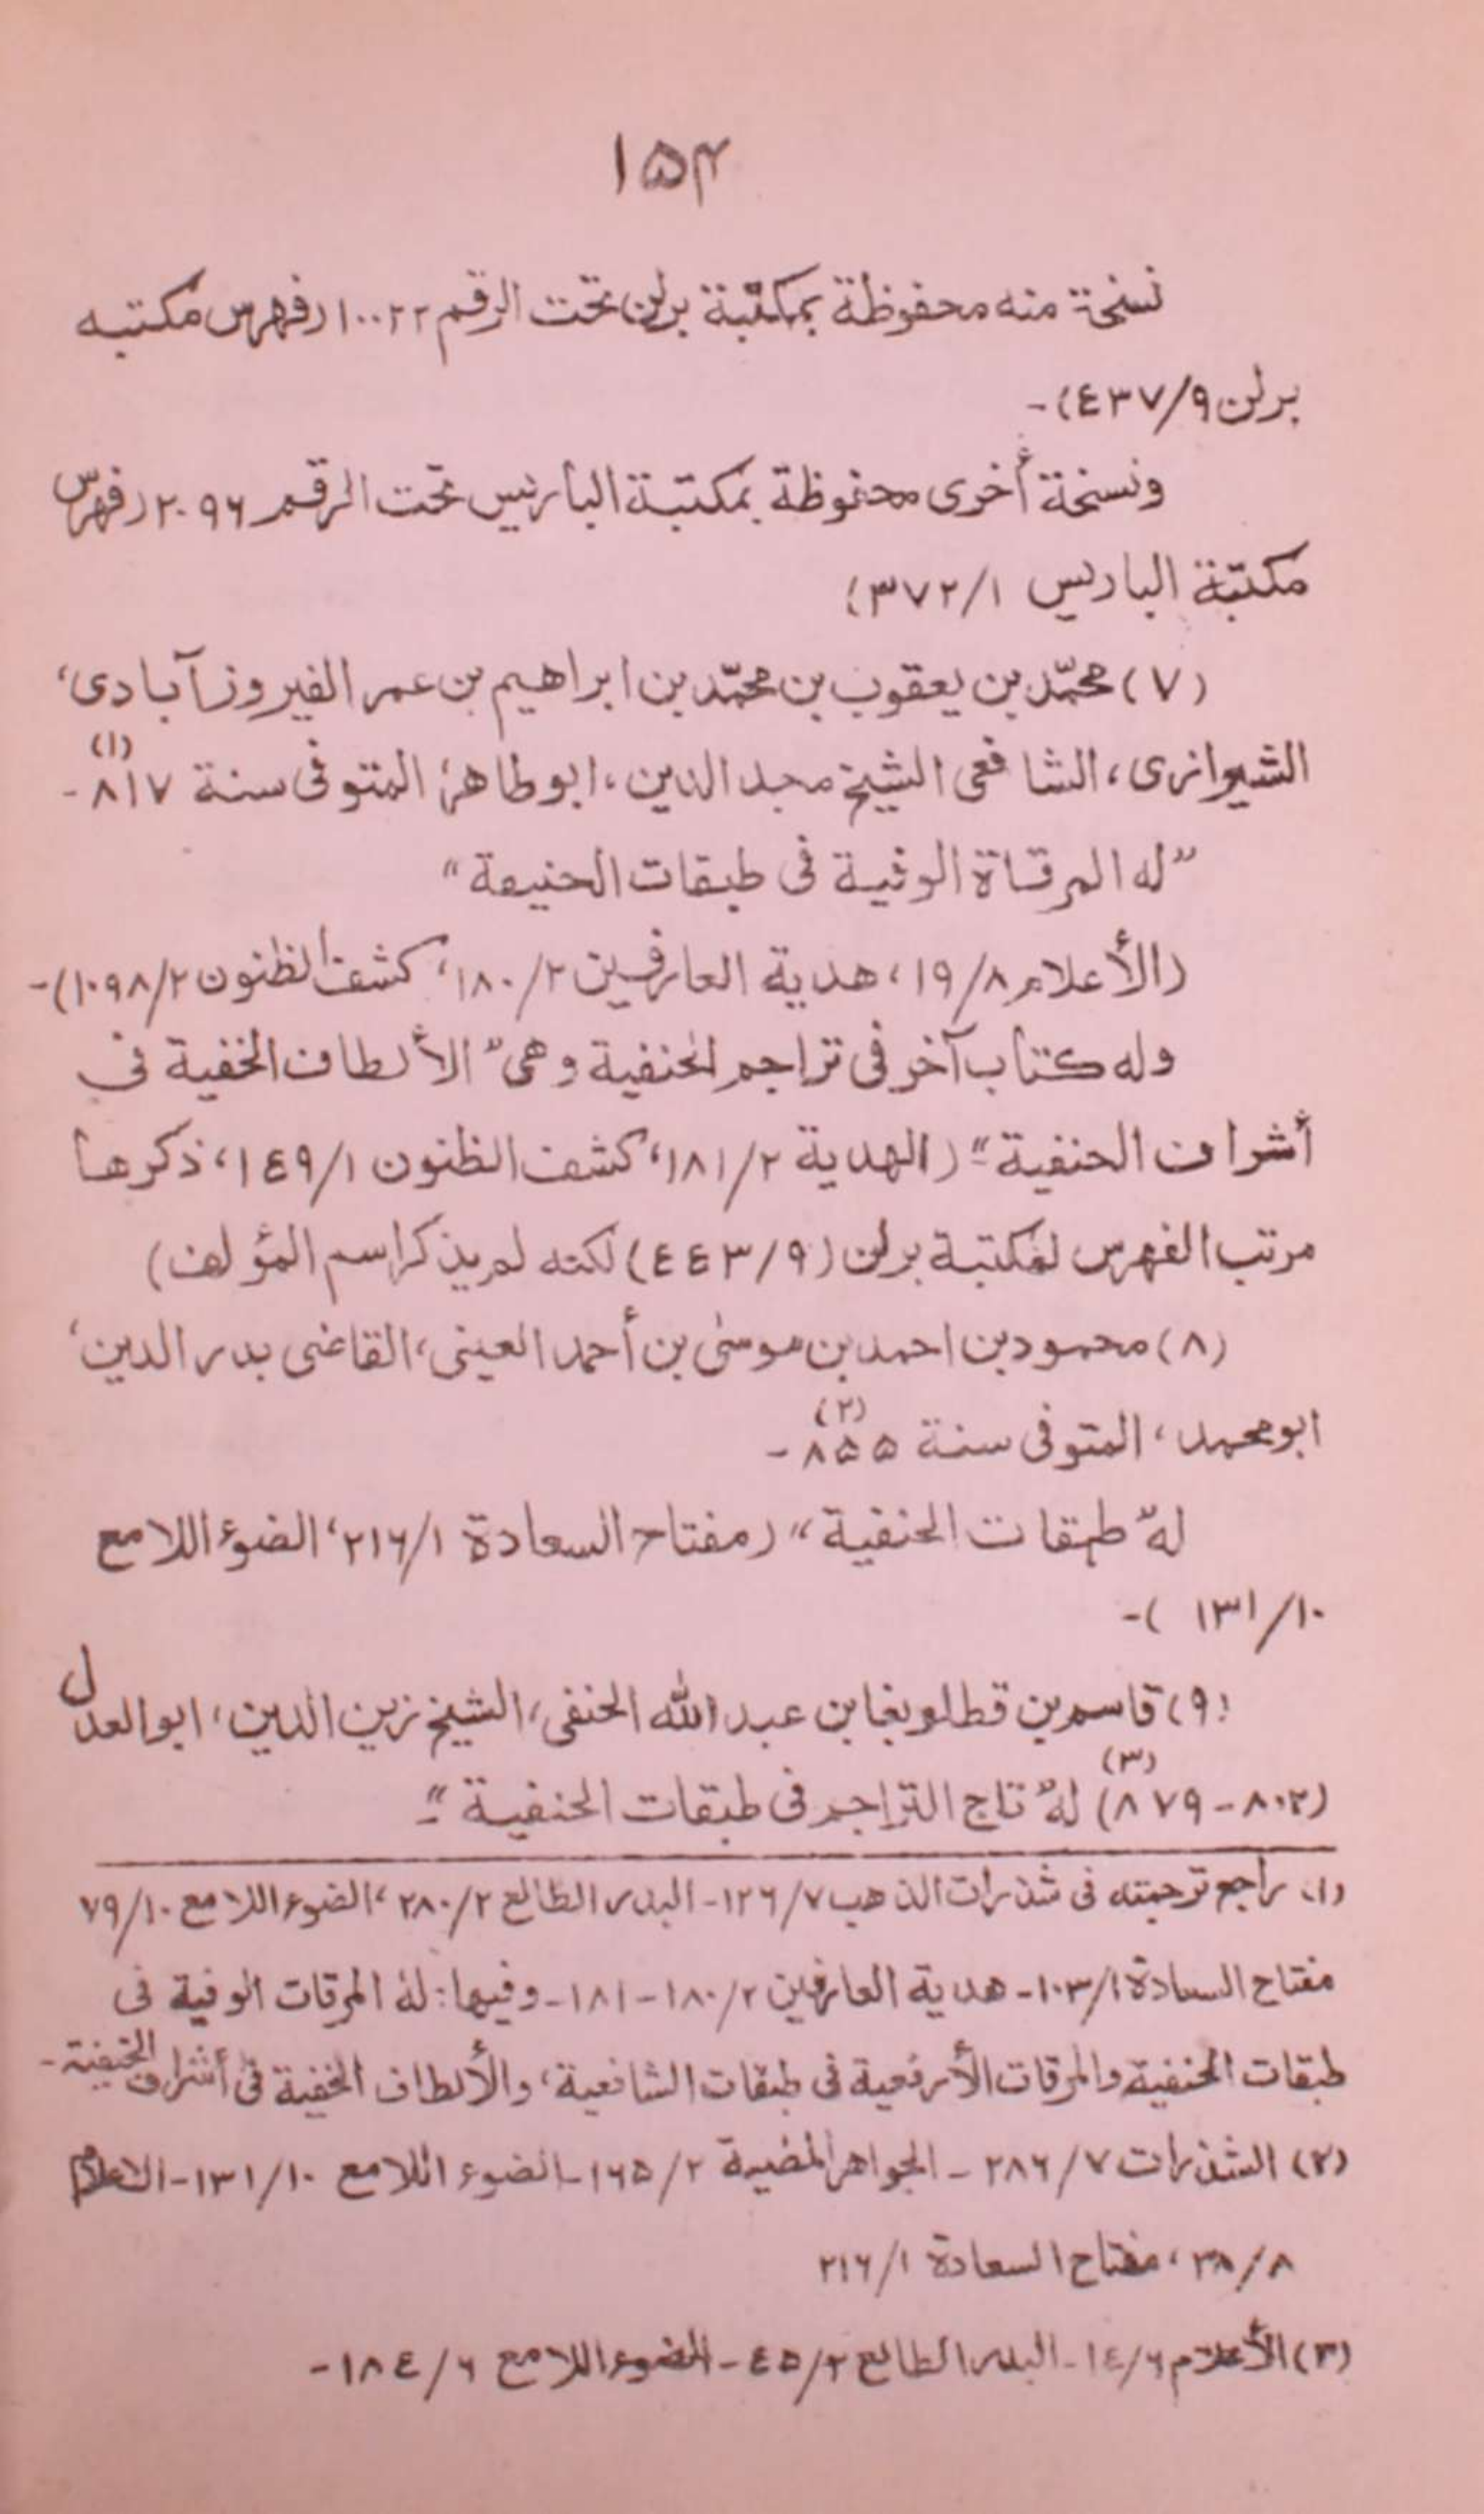 ۱۵۴
نسخة منه محفوظة بمكتبة برلن تحت الرقم ۱۰۰۲۲ (فهرس مكتبه
برلن ۹/٤۳۷)-
ونسخة أخرى محفوظة بمكتبة الباريس تحت الرقم ۲۰۹۶ (فهرس
مكتبة الباريس ۱/۳۷۲)
(۷) محمّد بن يعقوب بن محمّد بن ابراهيم بن عمر الفيروزآبادى،
الشيرازى، الشافعى الشيخ مجد الدين، ابوطاهر، المتوفى سنة ۸۱۷(۱)-
"له المرقاة الوفية فى طبقات الحنيفة"
(الأعلام ۸/۱۹، هدية العارفين ۲/۱۸۰، كشف الظنون ۲/۱۰۹۸)-
وله كتاب آخر فى تراجم الحنفية وهى "الألطاف الخفية فى
أشراف الحنفية"- (الهدية ۲/۱۸۱، كشف الظنون ۱/۱٤۹، ذكرها
مرتب الفهرس لمكتبة برلن (۹/٤٤۳) لكنه لم يذكر اسم المؤلف)
(۸) محمود بن احمد بن موسىٰ بن أحمد العينى، القاضى بدر الدين،
ابو محمد، المتوفى سنة ۸۵۵(۲)-
له "طبقات الحنفية" (مفتاح السعادة ۱/۲۱۶، الضوء اللامع
۱۰/۱۳۱ )-
(۹) قاسم بن قطلوبغا بن عبد الله الحنفى، الشيخ زين الدين، ابو العدل
(۸۰۲-۸۷۹)(۳) له "تاج التراجم فى طبقات الحنفية"-
(۱) راجع ترجمته فى شذرات الذهب ۷/۱۲۶- البدر الطالع ۲/۲۸۰، الضوء اللامع ۱۰/۷۹
مفتاح السعادة ۱/۱۰۳- هدية العارفين ۲/۱۸۰-۱۸۱- وفيها: له المرقات الوفية فى
طبقات الحنفية والمرقات الأرفعية فى طبقات الشافعية، والألطاف الخفية فى أشراف الحنيفية-
(۲) الشذرات ۷/۲۸۶- الجواهر المضية ۲/۱۶۵- الضوء اللامع ۱۰/۱۳۱- الاعلام
۸/۳۸، مفتاح السعادة ۱/۲۱۶
(۳) الأعلام ۶/۱٤- البدر الطالع ۲/٤۵- الضوء اللامع ۶/۱۸٤-